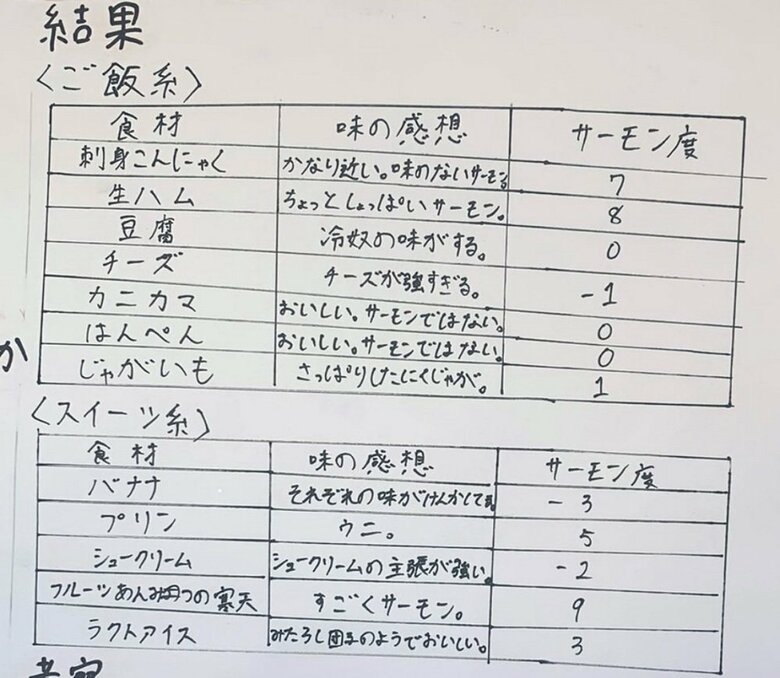 結果
〈ご飯系〉
食材 味の感想 サーモン度
刺身こんにゃく かなり近い。味のないサーモン。 7
生ハム ちょっとしょっぱいサーモン。 8
豆腐 冷奴の味がする。 0
チーズ チーズが強すぎる。 -1
カニカマ おいしい。サーモンではない。 0
はんぺん おいしい。サーモンではない。 0
じゃがいも さっぱりしたにくじゃが。 1
か
〈スイーツ系〉
食材 味の感想 サーモン度
バナナ それぞれの味がけんかしてる。 -3
プリン ウニ。 5
シュークリーム シュークリームの主張が強い。 -2
フルーツあんみつの寒天 すごくサーモン。 9
ラクトアイス みたらし団子のようでおいしい。 3